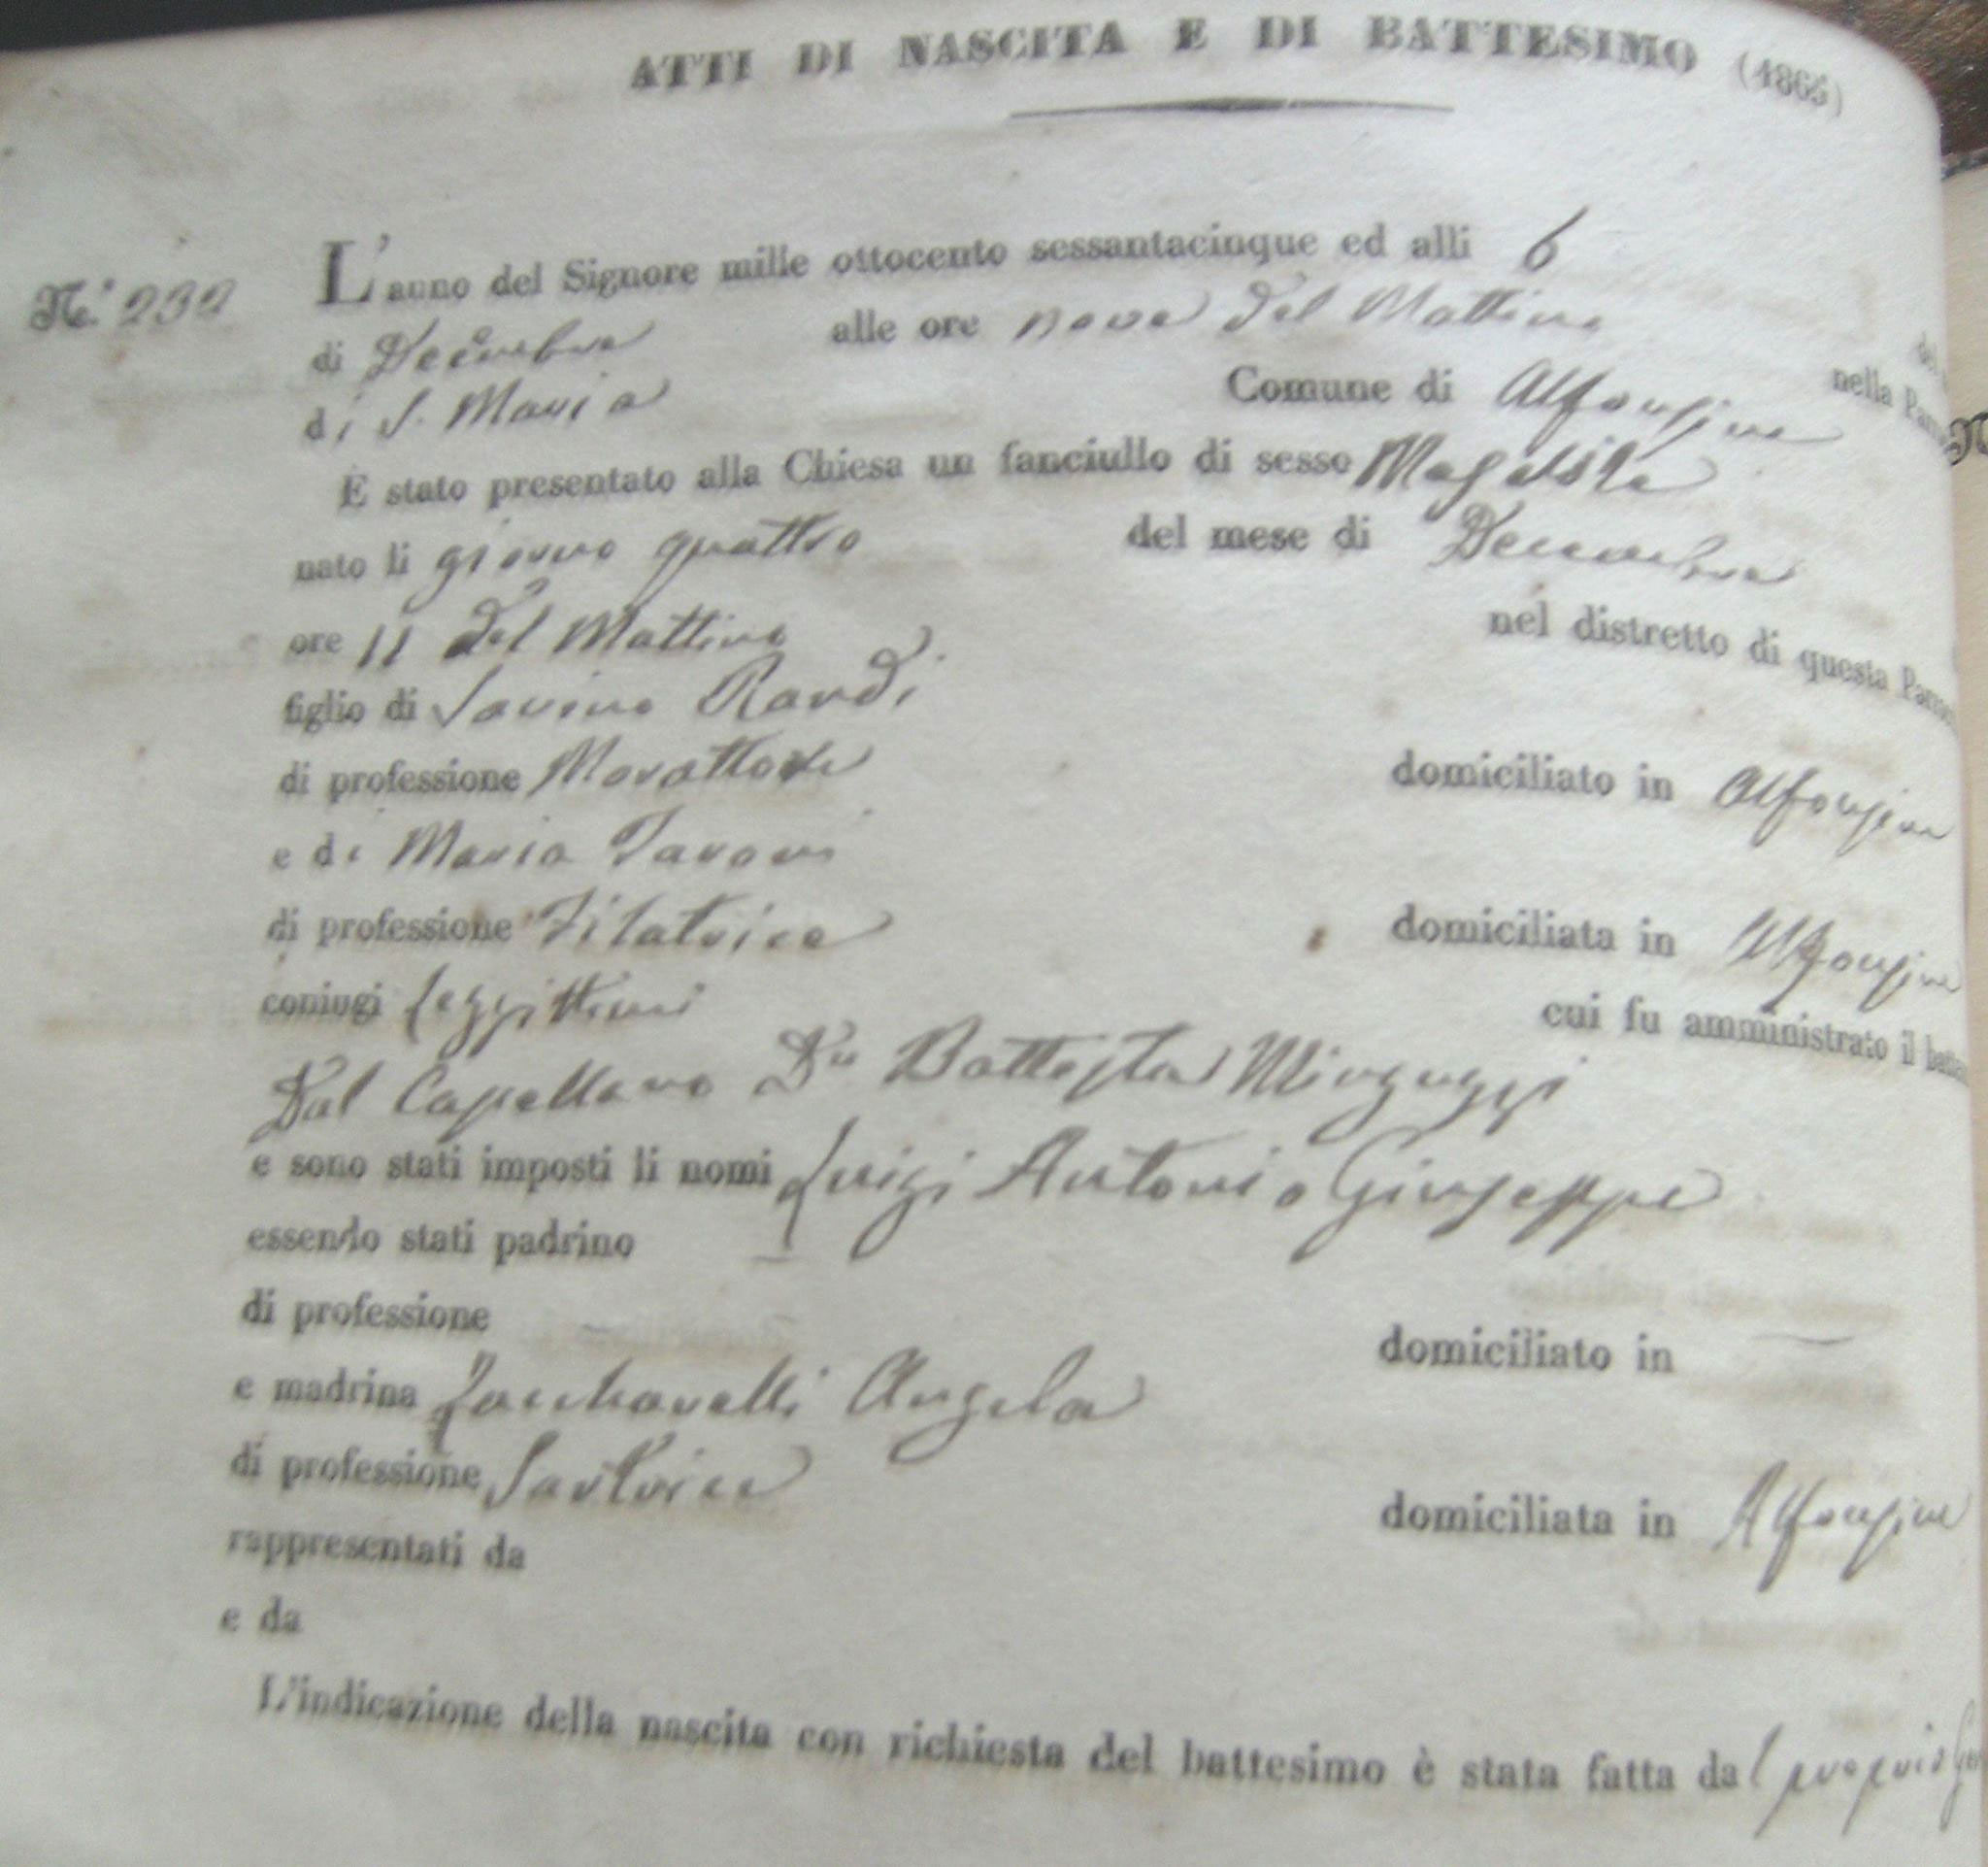 ATTI DI NASCITA E DI BATTESIMO (1865)
N.° 232
L'anno del Signore mille ottocento sessantacinque ed alli 6
di Decembre alle ore nove del Mattino nella
di S. Maria Comune di Alfonsine
È stato presentato alla Chiesa un fanciullo di sesso
nato li giorno quattro del mese di Decembre
ore 11 del Mattino nel distretto di questa
figlio di Savino Randi
di professione domiciliato in Alfonsine
e di Maria Tavoni
di professione Filatrice domiciliata in Alfonsine
coniugi Leggittimi cui fu amministrato il
Dal Capellano Dn Battista Minguzzi
e sono stati imposti li nomi Luigi Antonio Giuseppe
essendo stati padrino —
di professione domiciliato in —
e madrina Zaccharelli Angela
di professione Sartrice domiciliata in Alfonsine
rappresentati da
e da
L'indicazione della nascita con richiesta del battesimo è stata fatta dal